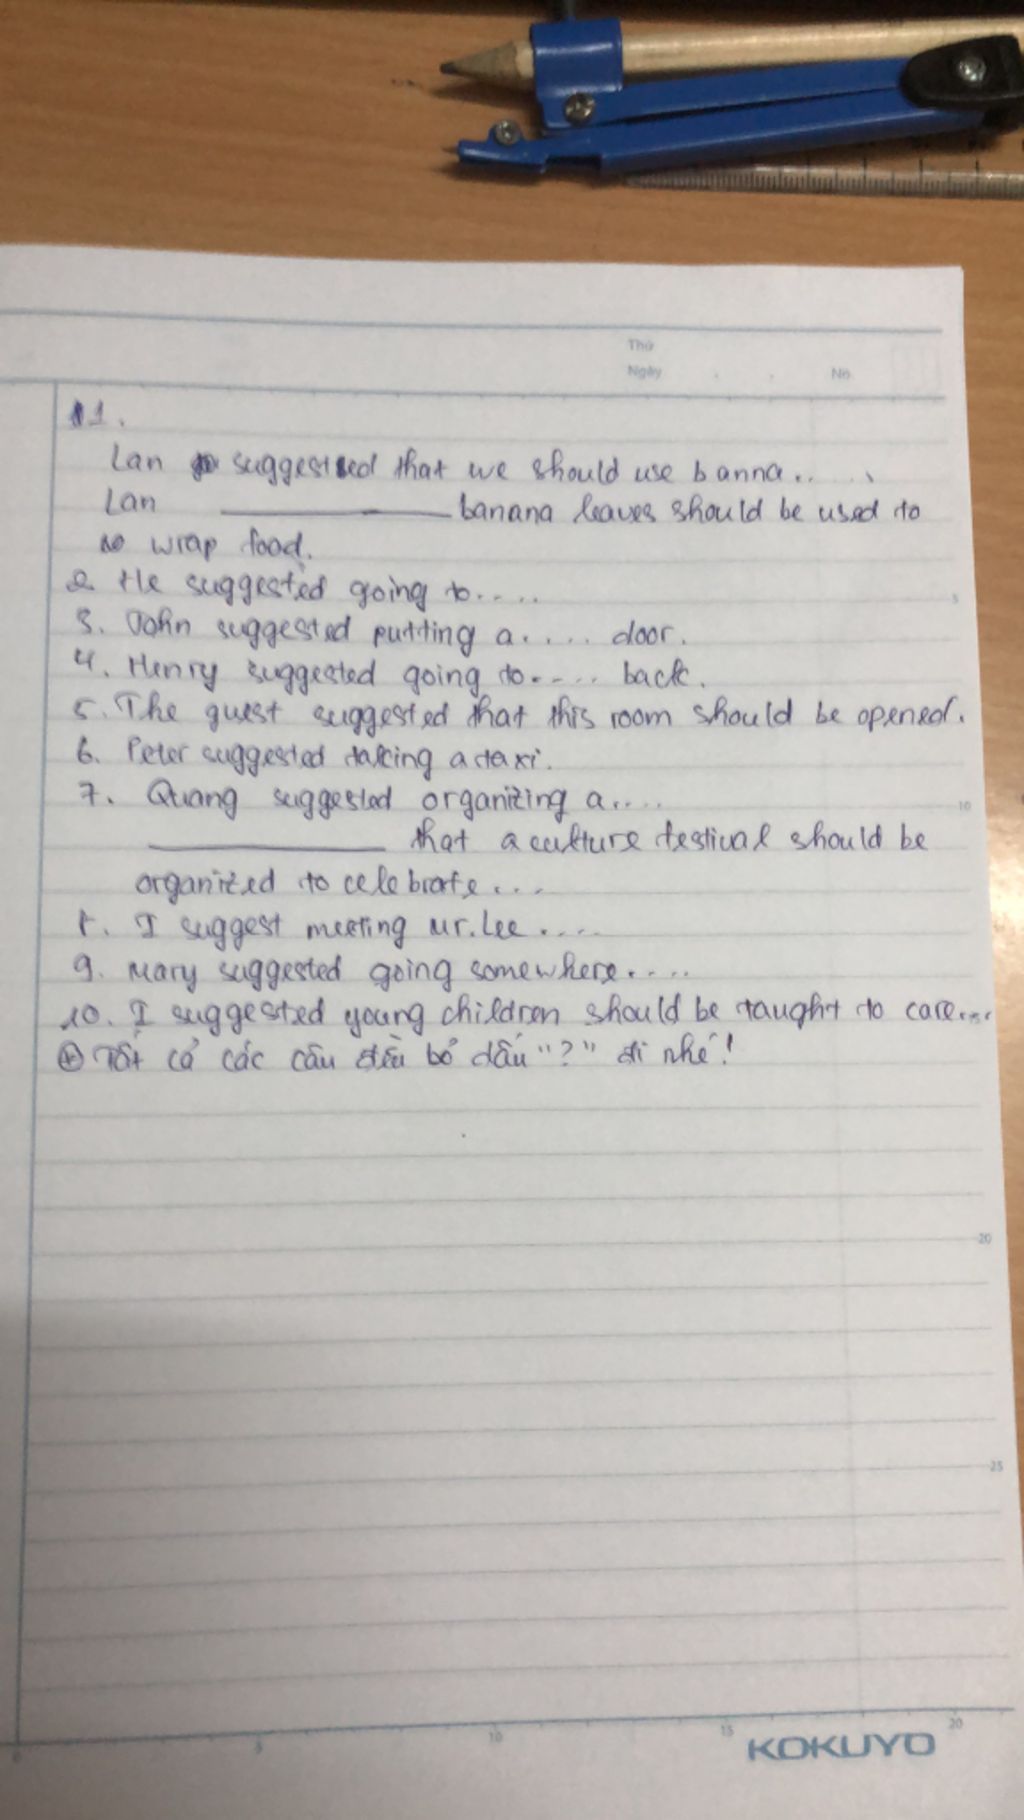 Thứ
Ngày . . No
1.
Lan suggested that we should use banna.. . .
Lan ________ banana leaves should be used to
wrap food.
2. He suggested going to.....
3. John suggested putting a..... door.
4. Henry suggested going to..... back.
5. The guest suggested that this room should be opened.
6. Peter suggested taking a taxi.
7. Quang suggested organizing a.....
________ that a culture festival should be
organized to celebrate...
8. I suggest meeting Mr. Lee.....
9. Mary suggested going somewhere.....
10. I suggested young children should be taught to care....
⊕ Tất cả các câu đều bỏ dấu "?" đi nhé!
5
10
20
25
0 5 10 15 20
KOKUYO